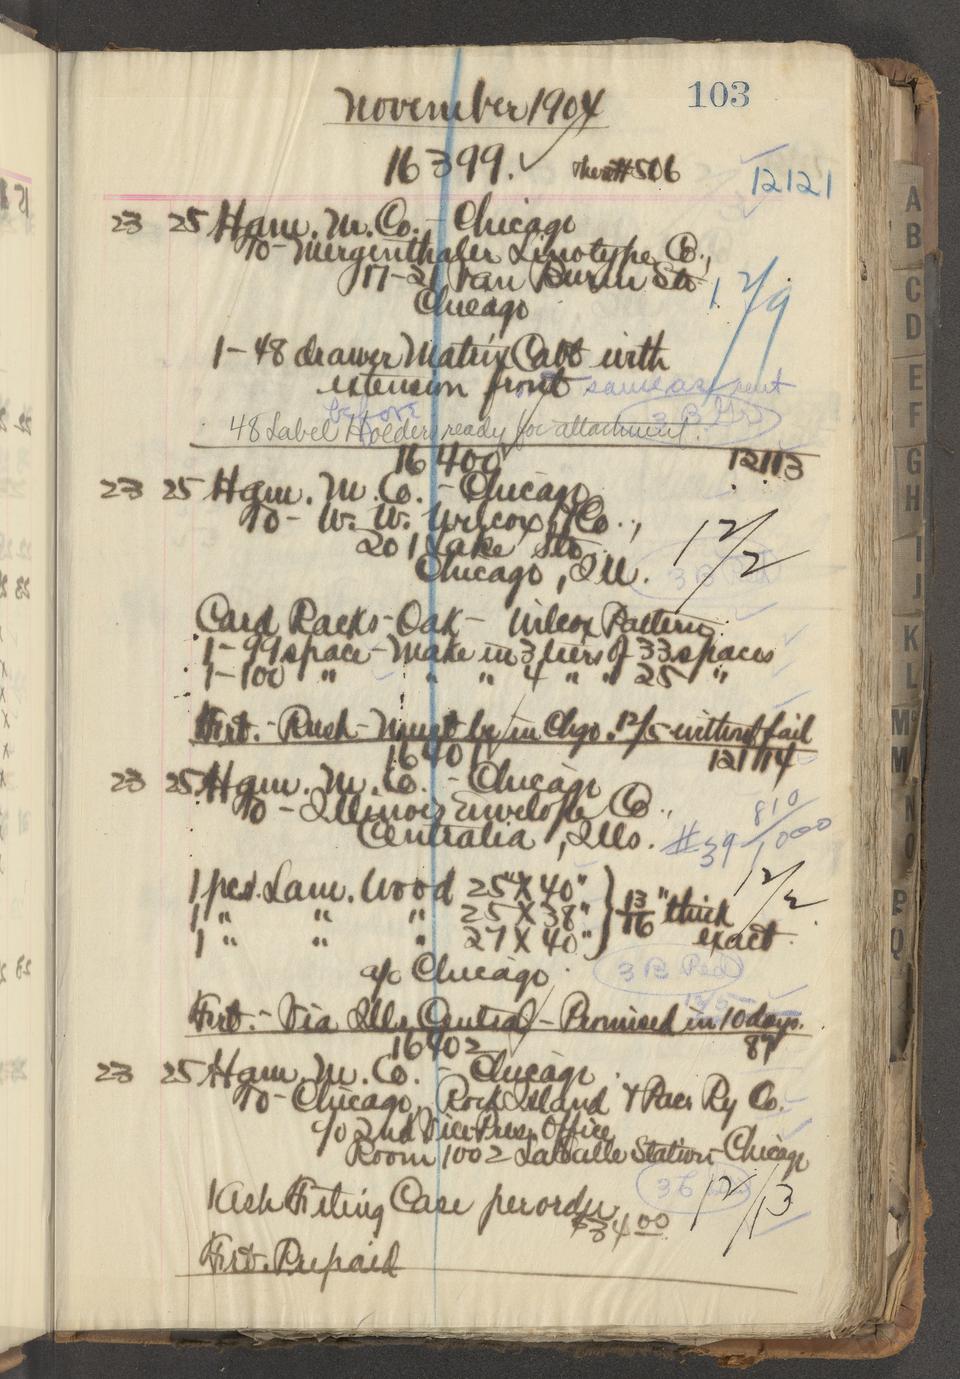 103
November 1904
16399. ✓ 506 12121
23 25 Ham. M. Co. - Chicago
To - Mergenthaler Linotype Co.,
17-21 Van Buren St.
Chicago 12/9
1 - 48 drawer Matrix Cabt with
extension front same as sent
before 3 B
48 Label Holders ready for attachment.
16400 12113
23 25 Ham. M. Co. - Chicago
To - W. W. Wilcox & Co.,
201 Lake St. 12/2
Chicago, Ill. 3 B Ped
Card Racks - Oak - Wilcox Pattern
1 - 99 space - Make in 3 tiers of 33 spaces
1 - 100 " " " 4 " " 25 "
Frt. - Rush - Must be in Chgo. 12/5 without fail
16401 12114
23 25 Ham. M. Co. - Chicago
To - Illinois Envelope Co., 810
Centralia, Ills. #39 1000
1 pcs. Lam. Wood 25" X 40" 12/2
1 " " " 25 X 38" } 13/16" thick
1 " " " 27 X 40" exact
a/o Chicago 3 B Ped
12/5
Frt. - Via Ills Central - Promised in 10 days.
16402 87
23 25 Ham. M. Co. - Chicago
To - Chicago, Rock Island & Pac. Ry Co.
c/o 2nd Vice Pres. Office
Room 1002 LaSalle Station - Chicago
1 Ash Filing Case per order 12/13
$34 00
Frt. Prepaid
A
B
C
D
E
F
G
H
I
J
K
L
M
M
N
O
P
Q